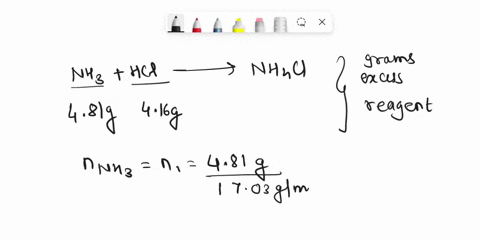 NH3 + HCl → NH4Cl
4.81g 4.16g
grams
excess
reagent
nNH3 = n1 = 4.81 g / 17.03 g/m